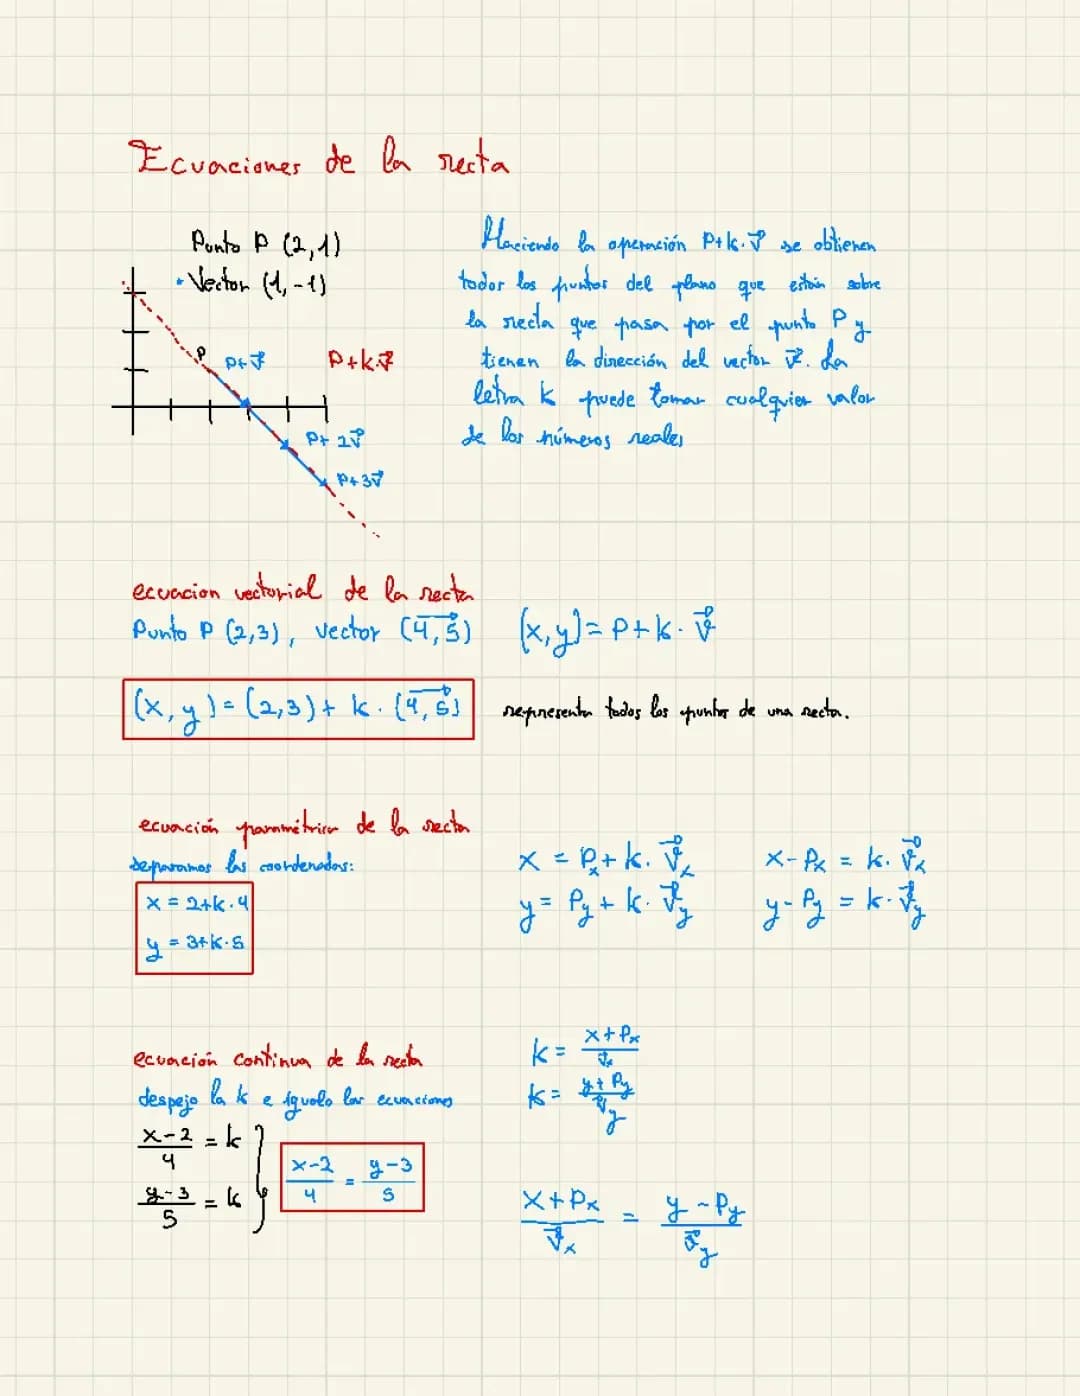 Ecuaciones de la recta
Punto P (2,1)
• Vector (1,-1)
P
P+v⃗
P+k·v⃗
P+2v⃗
P+3v⃗
Haciendo la operación P+k·v⃗ se obtienen
todos los puntos del plano que están sobre
la recta que pasa por el punto P y
tienen la dirección del vector v⃗. La
letra k puede tomar cualquier valor
de los números reales
ecuacion vectorial de la recta
Punto P (2,3), vector (4,5)
(x,y) = P+k·v⃗
(x,y) = (2,3) + k·(4,5)
representa todos los puntos de una recta.
ecuación paramétrica de la recta
separamos las coordenadas:
x = 2+k·4
y = 3+k·5
x = Px + k·v⃗x
y = Py + k·v⃗y
x-Px = k·v⃗x
y-Py = k·v⃗y
ecuación continua de la recta
despejo la k e igualo las ecuaciones
(x-2)/4 = k
(y-3)/5 = k
(x-2)/4 = (y-3)/5
k = (x+Px)/v⃗x
k = (y+Py)/v⃗y
(x+Px)/v⃗x = (y-Py)/v⃗y